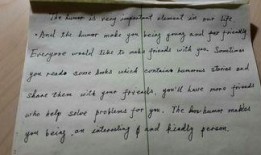 The humor is very important element in our life.
. And the humor make you being young and friendly
Everyone would like to make friends with you. Sometimes
you reads some books which contains humorous stories and
share them with your friends, you'll have more friends
who help solve problems for you. The humor makes
you being an interesting and kindly person.